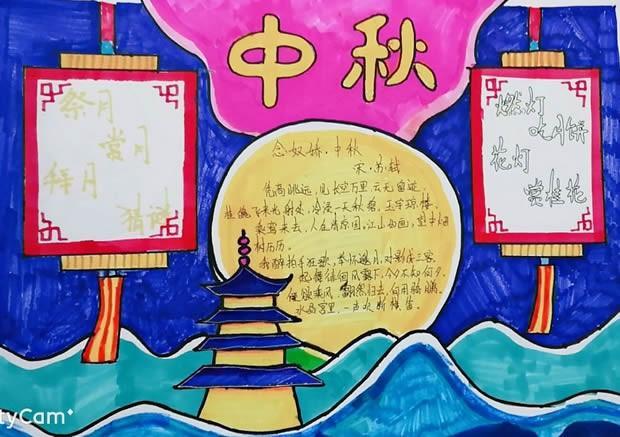 中秋
祭月
赏月
拜月
猜谜
念奴娇·中秋
宋·苏轼
凭高眺远，见长空万里，云无留迹，
桂魄飞来光射处，冷浸一天秋碧，玉宇琼楼，
乘鸾来去，人在清凉国，江山如画，望中烟
树历历。
我醉拍手狂歌，举杯邀月，对影成三客，
起舞徘徊风露下，今夕不知何夕，
便欲乘风，翻然归去，何用骑鹏，
水晶宫里，一声吹断横笛。
燃灯
吃月饼
花灯
赏桂花
tyCam+